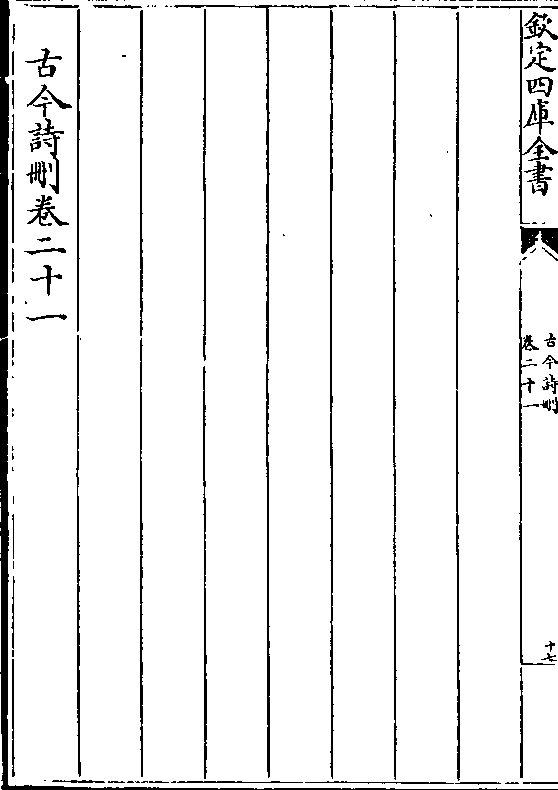 欽定四庫全書
古今詩刪
卷二十一
十七
古今詩刪卷二十一